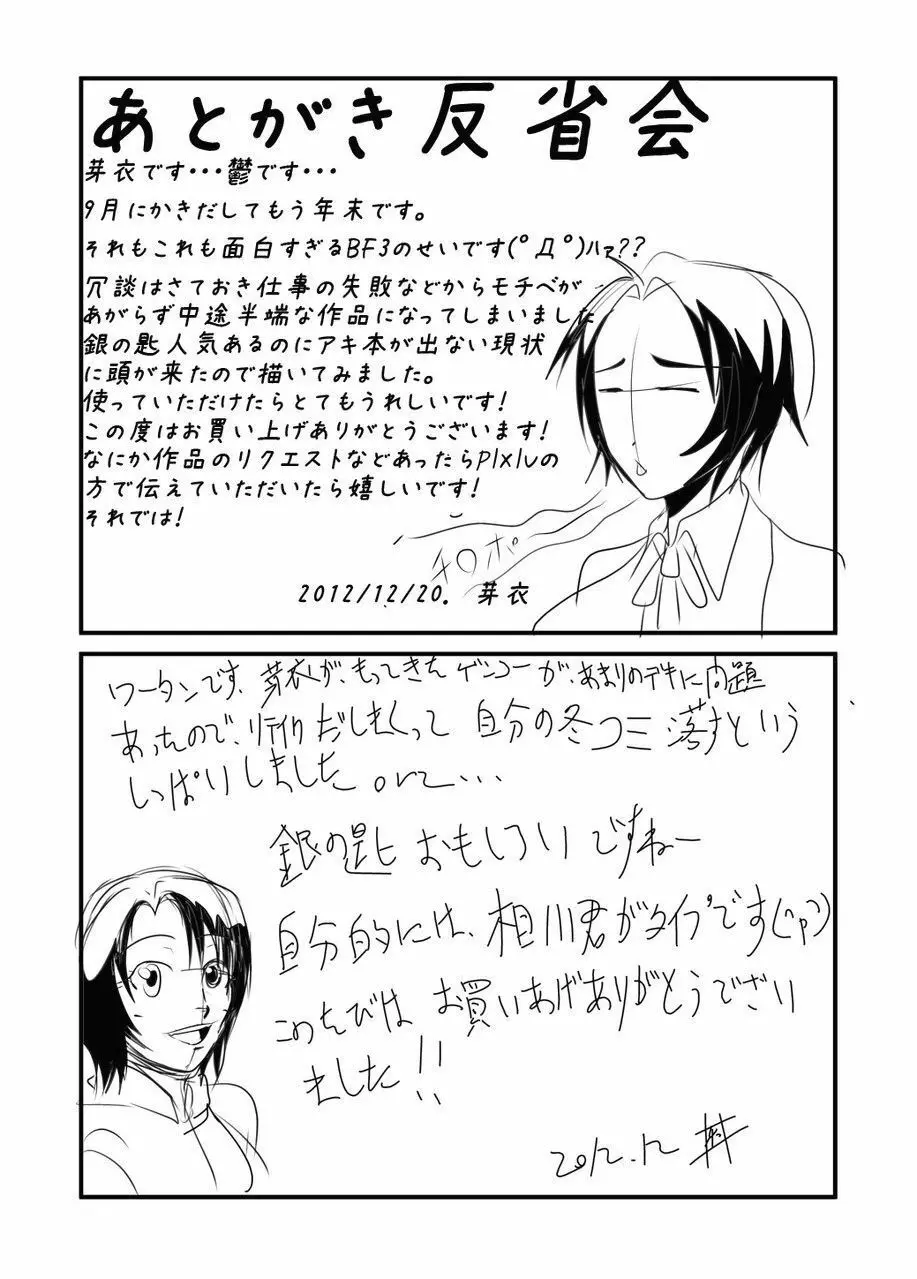 あとがき反省会
芽衣です・・・鬱です・・・
9月にかきだしてもう年末です。
それもこれも面白すぎるBF3のせいです(ﾟДﾟ)ﾊｧ??
冗談はさておき仕事の失敗などからモチベが
あがらず中途半端な作品になってしまいました
銀の匙人気あるのにアキ本が出ない現状
に頭が来たので描いてみました。
使っていただけたらとてもうれしいです!
この度はお買い上げありがとうございます!
なにか作品のリクエストなどあったらPIxIvの
方で伝えていただいたら嬉しいです!
それでは!
チロポ
2012/12/20. 芽衣
ワータンです、芽衣が、もってきたゲンコーが、あまりのデキに問題
あったので、リテイクだしまくって 自分の冬コミ落すという
しっぱりしました orz...
銀の匙 おもしろいですねー
自分的には、相川君がタイプです
このたびは お買いあげありがとうござい
ました!!
2012.12